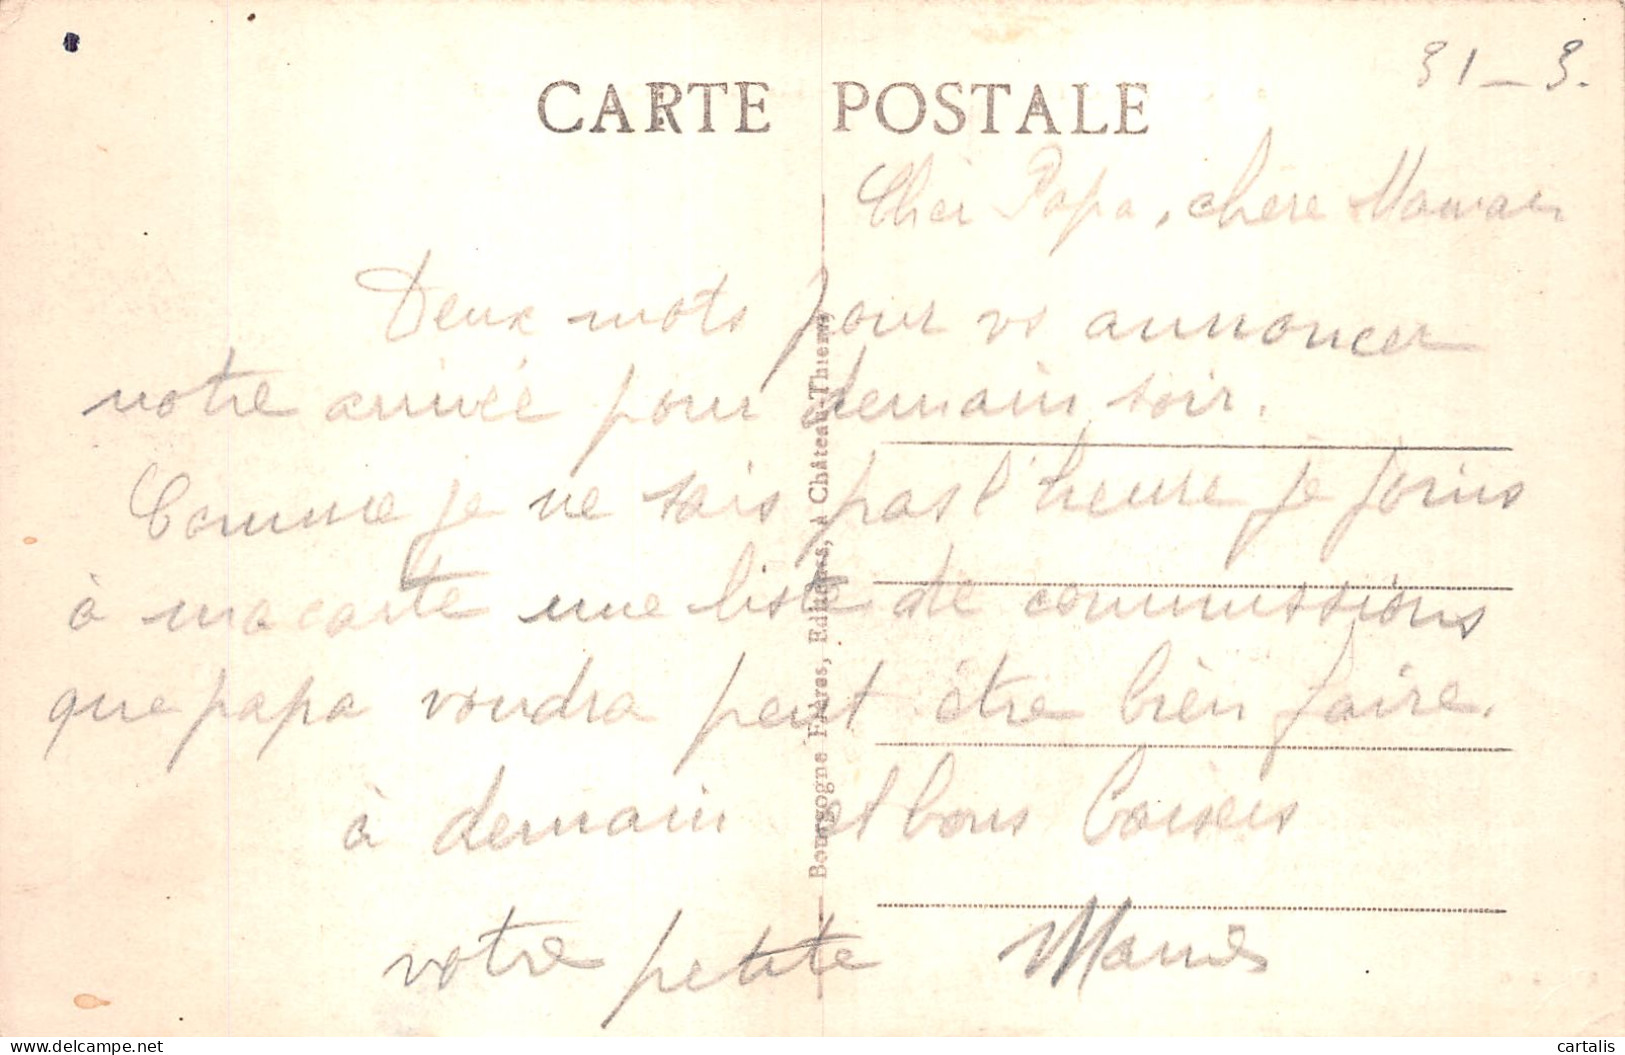 31 - 3.
CARTE POSTALE
Cher Papa, chère Maman
Deux mots pour vs annoncer
notre arrivée pour demain soir.
Comme je ne sais pas l'heure je joins
à ma carte une liste de commissions
que papa voudra peut être bien faire.
à demain et bons baisers
votre petite
Bourgogne Frères, Editeurs, à Château-Thierry
cartalis